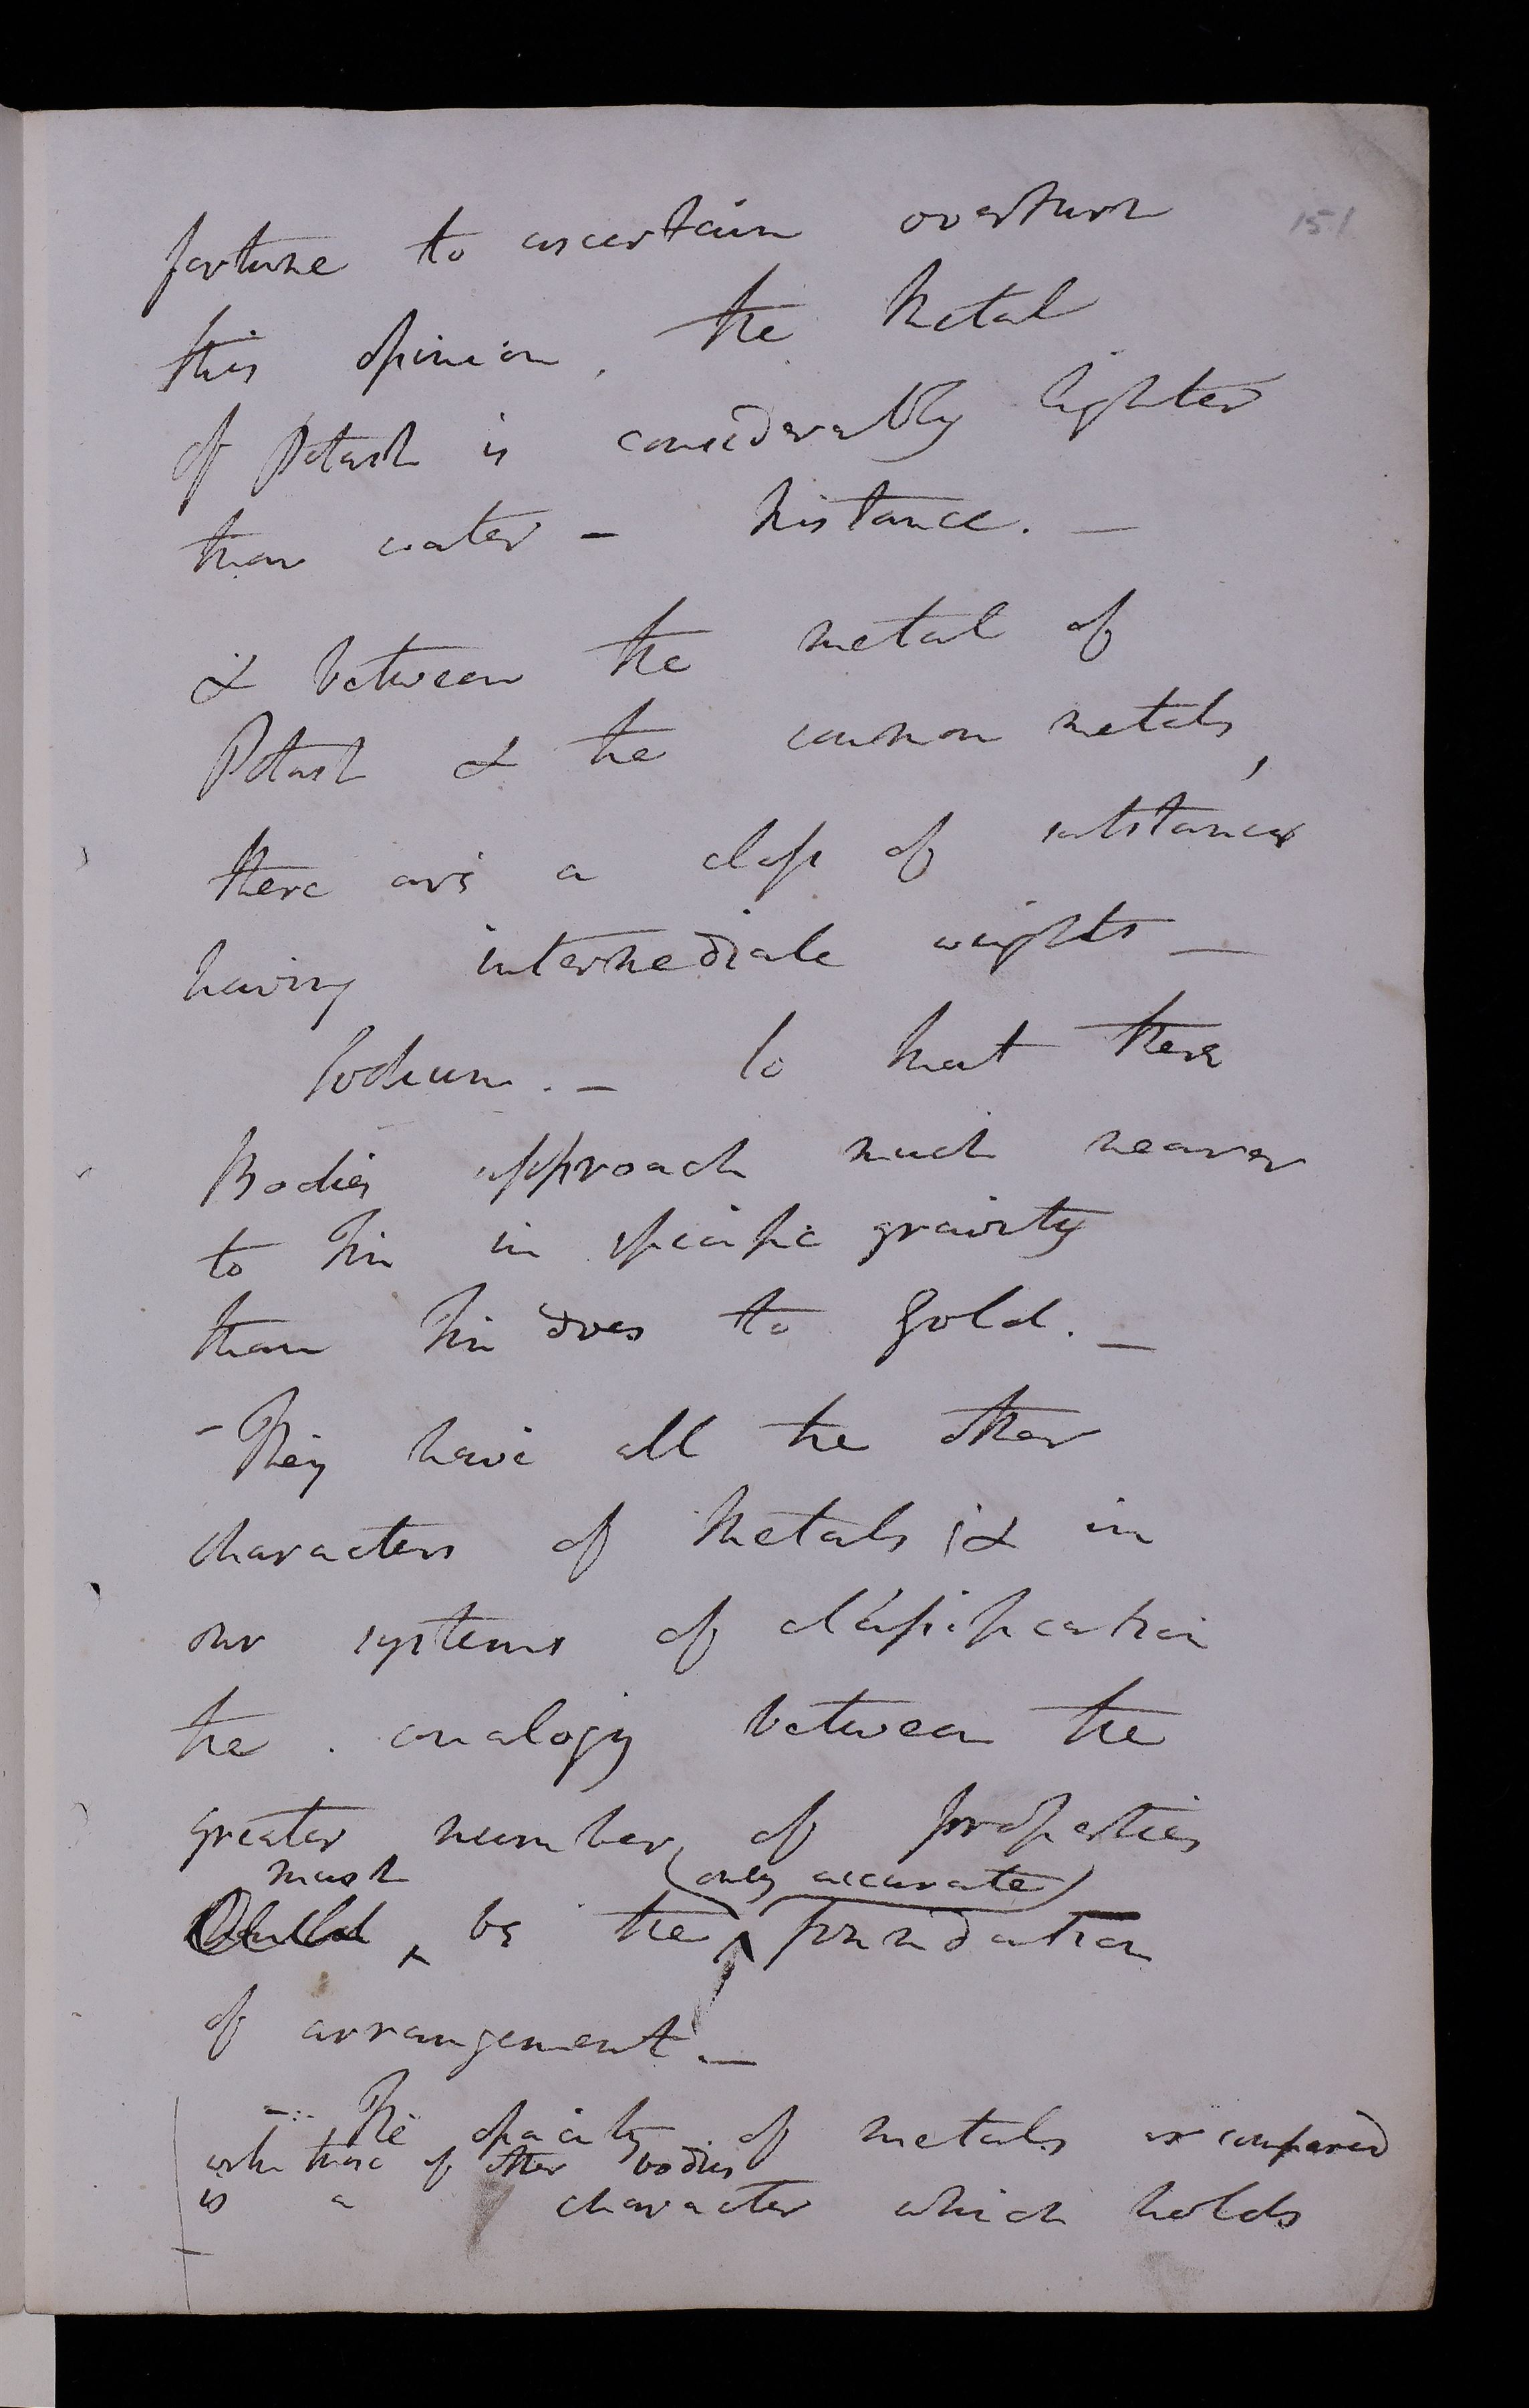 151
fortune to ascertain overturn
this opinion, the Metal
of Potash is considerably lighter
than water – Instance. –
& between the metal of
Potash & the common metals,
there are a class of substances
having intermediate weights –
Sodium. – So that these
Bodies approach much nearer
to Tin in specific gravity
than Tin does to Gold. –
– They have all the other
characters of Metals; & in
our systems of classification
the analogy between the
greater number of properties
must (only accurate)
be the foundation
of arrangement –
– The opacity of metals as compared
with those of other bodies
is a character which holds